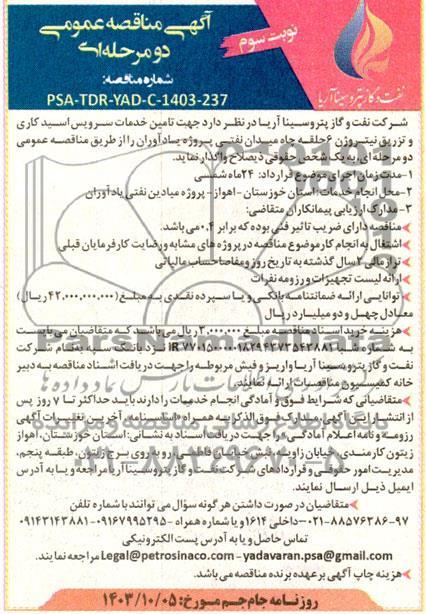 آگهی مناقصه عمومی
دو مرحله‌ای
نوبت سوم
شماره مناقصه:
PSA-TDR-YAD-C-1403-237
نفت و گاز پتروسینا آریا
شرکت نفت و گاز پتروسینا آریا در نظر دارد جهت تامین خدمات سرویس اسید کاری
و تزریق نیتروژن ۶ حلقه چاه میدان نفتی پروژه یادآوران را از طریق مناقصه عمومی
دو مرحله‌ای، به یک شخص حقوقی ذیصلاح واگذار نماید.
۱-مدت زمان اجرای موضوع قرارداد: ۲۴ماه شمسی
۲-محل انجام خدمات: استان خوزستان - اهواز- پروژه میادین نفتی یادآوران
۳-مدارک ارزیابی پیمانکاران متقاضی:
مناقصه دارای ضریب تاثیر فنی بوده که برابر ۰.۴ می باشد.
اشتغال به انجام کار موضوع مناقصه در پروژه های مشابه و رضایت کارفرمایان قبلی
تراز مالی ۲ سال گذشته به تاریخ روز و مفاصا حساب مالیاتی
ارائه لیست تجهیزات و رزومه نفرات
توانایی ارائه ضمانتنامه بانکی و یا سپرده نقدی به مبلغ (۴۲,۰۰۰,۰۰۰,۰۰۰ ریال)
معادل چهل و دو میلیارد ریال
هزینه خرید اسناد مناقصه مبلغ ۳,۰۰۰,۰۰۰ ریال می باشد که متقاضیان می بایست
به شماره شبا نزد بانک سپه به نام شرکت
نفت و گاز پتروسینا آریا واریز و فیش مربوطه را جهت دریافت اسناد مناقصه به دبیر
خانه کمیسیون مناقصات ارائه نمایند.
متقاضیانی که شرایط فوق و آمادگی انجام خدمات را دارند باید حداکثر تا ۷ روز پس
از انتشار این آگهی، مدارک فوق الذکر به همراه «اساسنامه، آخرین تغییرات آگهی
رزومه و نامه اعلام آمادگی» را جهت دریافت اسناد به نشانی: استان خوزستان، اهواز
زیتون کارمندی، خیابان زاویه، نبش خیابان فاطمی، روبه روی برج زیتون، طبقه پنجم،
مدیریت امور حقوقی و قراردادهای شرکت نفت و گاز پتروسینا آریا مراجعه و یا به آدرس
ایمیل ذیل ارسال نمایند.
متقاضیان در صورت داشتن هر گونه سؤال می توانند با شماره تلفن
۹۷-۸۸۵۷۶۳۸۶-۰۲۱ داخلی ۱۶۱۴ و یا شماره همراه ۰۹۱۶۷۹۹۵۲۹۵ - ۰۹۱۴۳۱۴۳۸۸۱
تماس حاصل و یا به آدرس پست الکترونیکی
Legal@petrosinaco.com - yadavaran.psa@gmail.com مراجعه نمایند.
هزینه چاپ آگهی بر عهده برنده مناقصه می باشد.
روزنامه جام جم مورخ: ۱۴۰۳/۱۰/۰۵